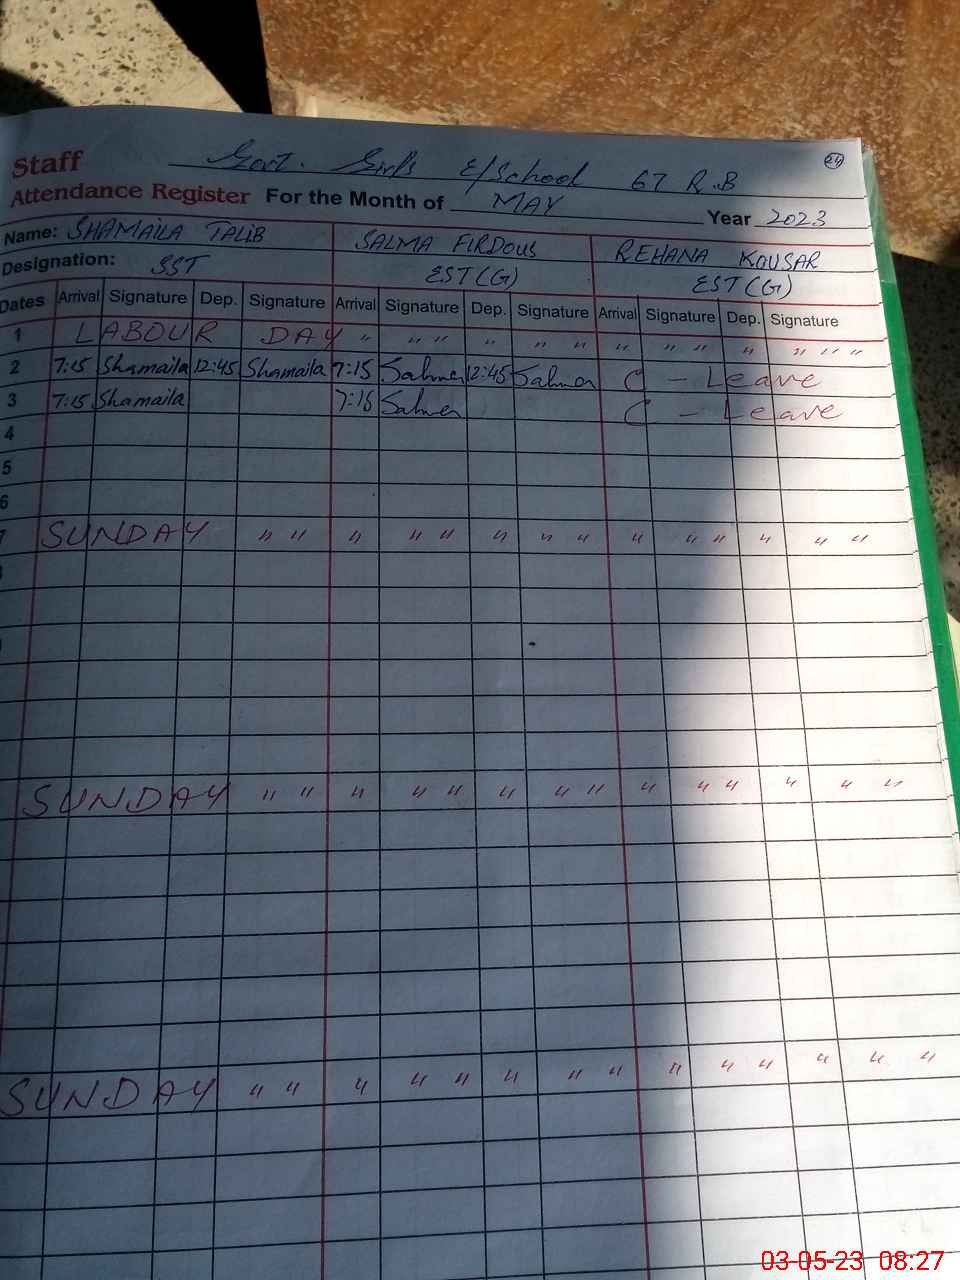 24
Staff Govt. Girls E/School 67 R.B
Attendance Register For the Month of MAY Year 2023
Name: SHAMAILA TALIB SALMA FIRDOUS REHANA KOUSAR
Designation: SST EST(G) EST(G)
Dates Arrival Signature Dep. Signature Arrival Signature Dep. Signature Arrival Signature Dep. Signature
1 LABOUR DAY " " " " " " " " " " " "
2 7:15 Shamaila 12:45 Shamaila 7:15 Salma 12:45 Salma C - Leave
3 7:15 Shamaila 7:15 Salma C - Leave
4
5
6
7 SUNDAY " " " " " " " " " " " " " "
SUNDAY " " " " " " " " " " " " " "
SUNDAY " " " " " " " " " " " " " "
03-05-23 08:27